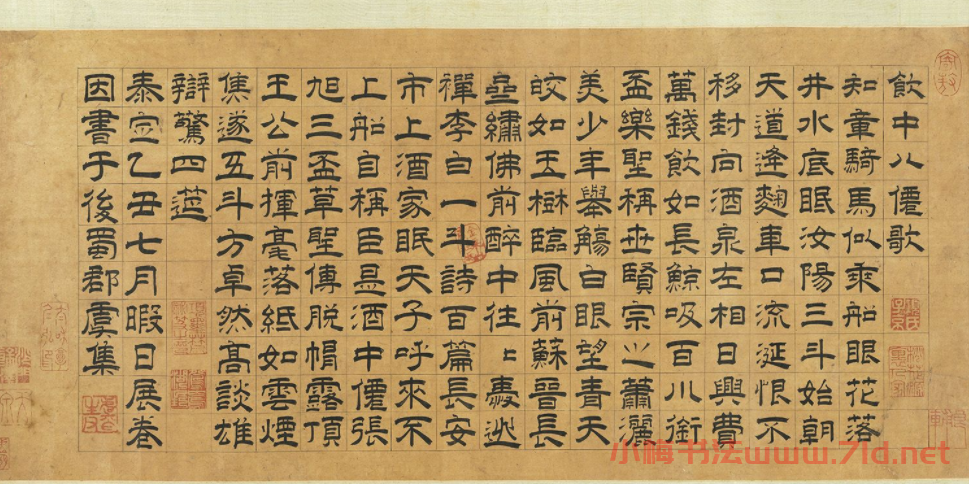 飲中八僊歌
知章騎馬似乘船眼花落
井水底眠汝陽三斗始朝
天道逢麴車口流涎恨不
移封向酒泉左相日興費
萬錢飲如長鯨吸百川銜
盃樂聖稱世賢宗之蕭灑
美少年舉觴白眼望青天
皎如玉樹臨風前蘇晉長
坐繡佛前醉中往〻愛逃
禪李白一斗詩百篇長安
市上酒家眠天子呼來不
上船自稱臣是酒中僊張
旭三盃草聖傳脱帽露頂
王公前揮毫落紙如雲煙
焦遂五斗方卓然高談雄
辯驚四筵
泰定乙丑七月暇日展卷
因書于後蜀郡虞集
小梅书法www.7ld.net